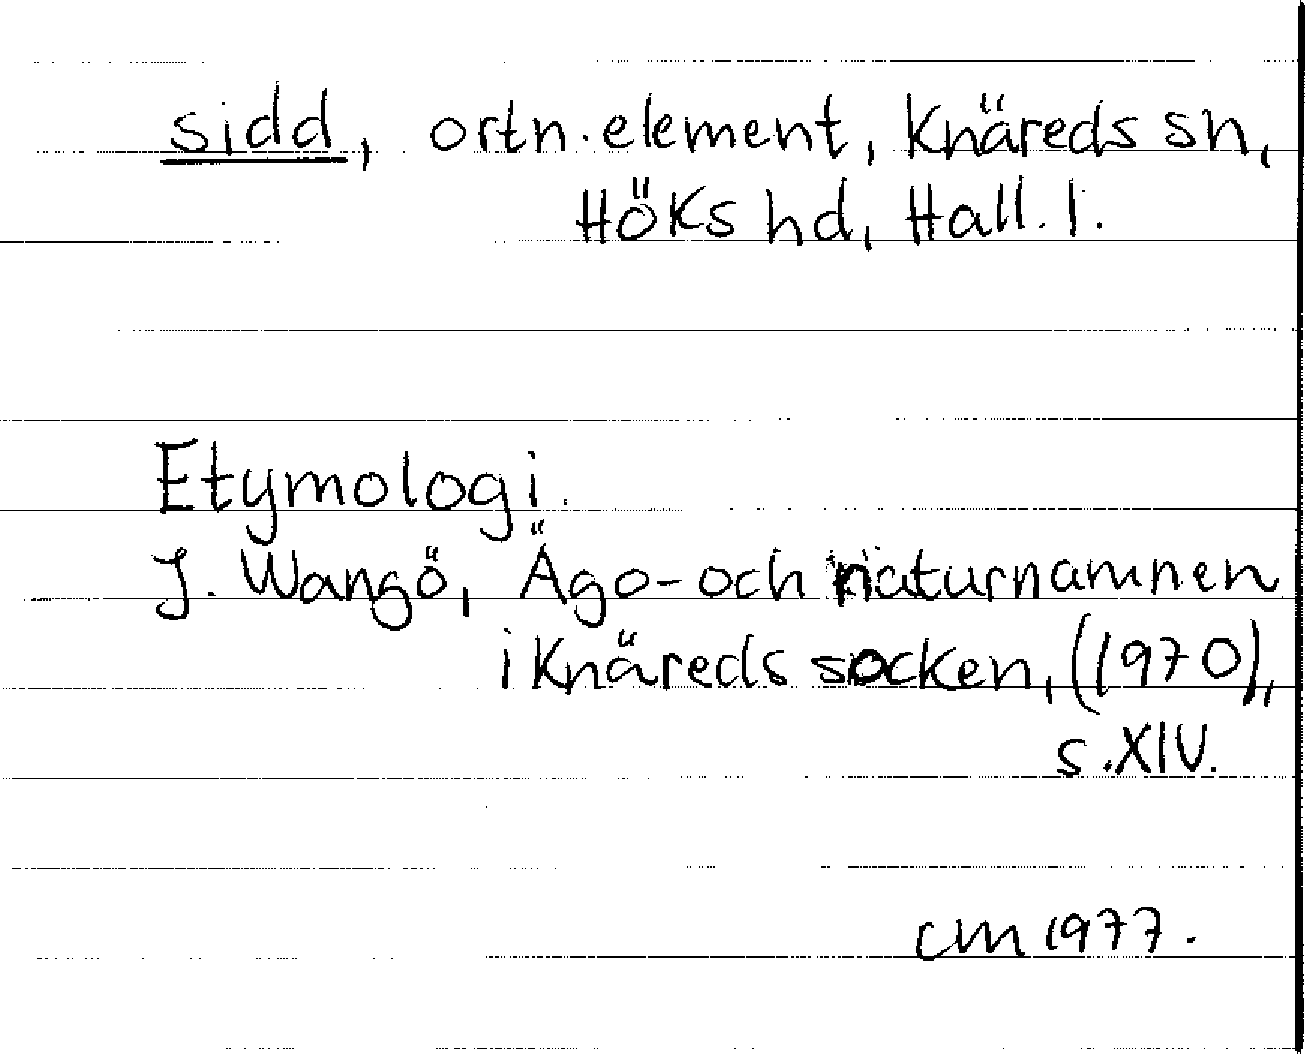 sidd, ortn.element, Knäreds sn,
Höks hd, Hall. l.
Etymologi.
J. Wangö, Ägo- och naturnamnen
i Knäreds socken, (1970),
s. XIV.
CM 1977.